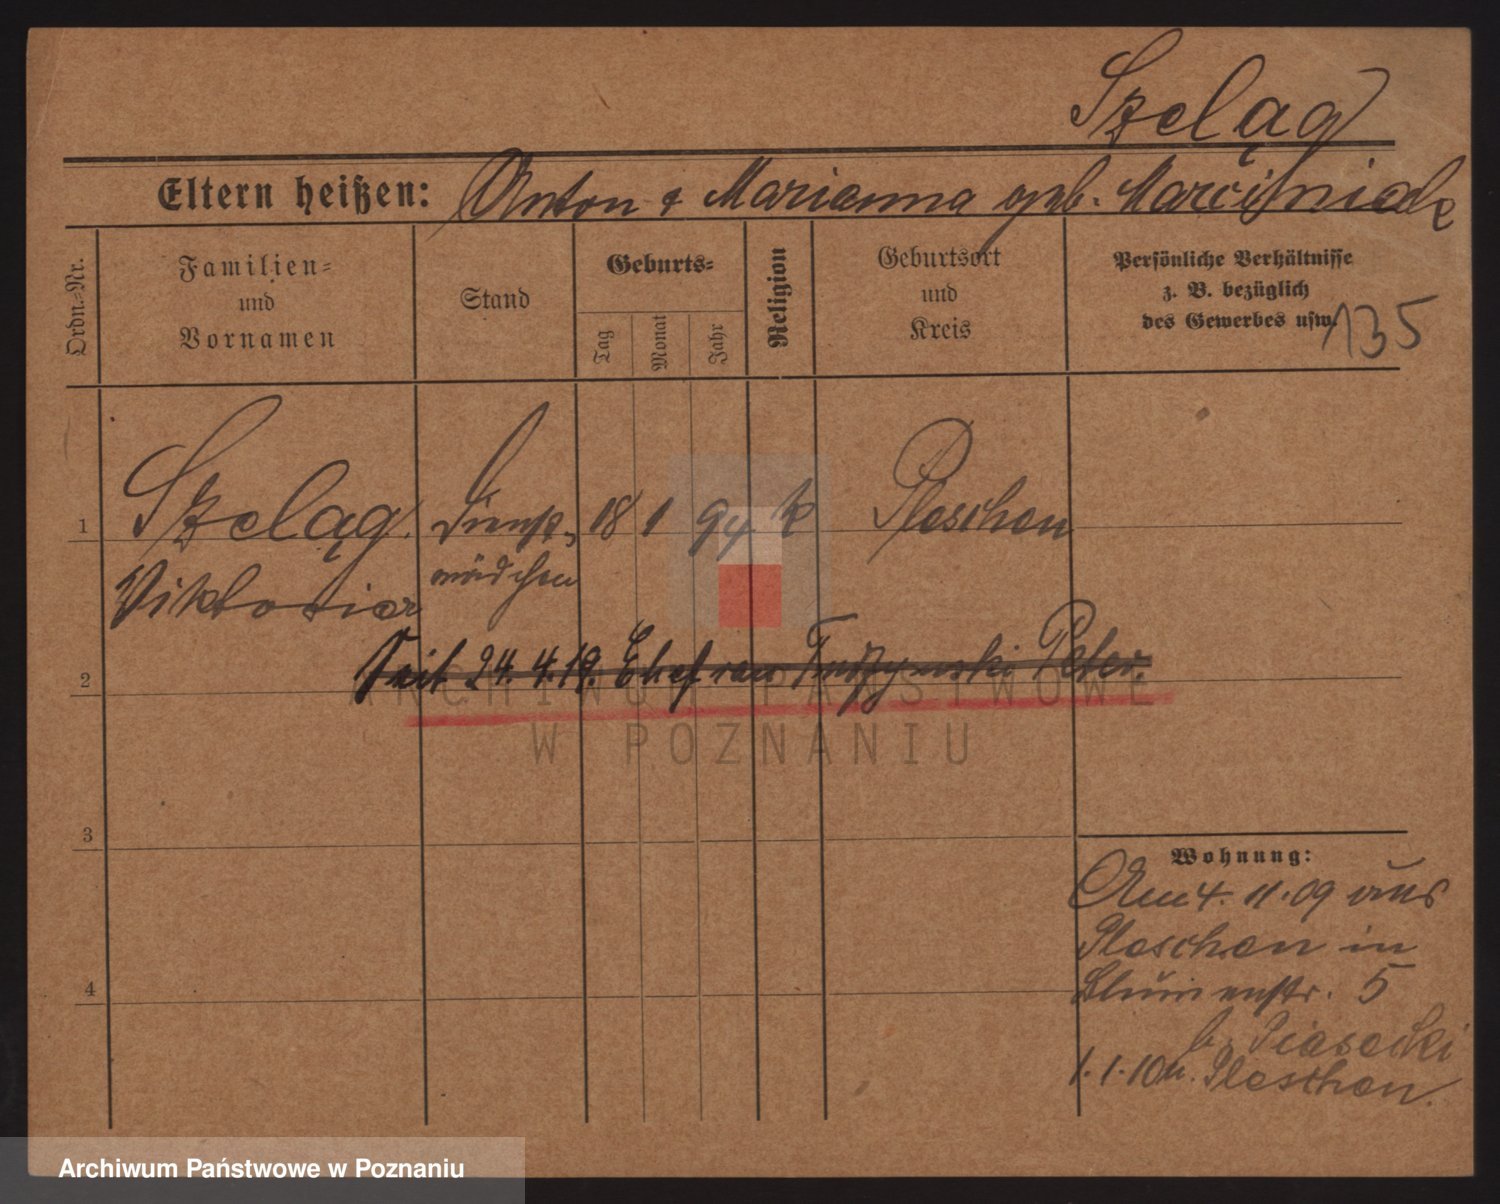 Szeląg
Eltern heißen: Anton & Marianna geb. Marciniak
Ordn.=Nr.
Familien=
und
Vornamen
Stand
Geburts=
Tag
Monat
Jahr
Religion
Geburtsort
und
Kreis
Persönliche Verhältnisse
z. B. bezüglich
des Gewerbes usw.
135
1 Szeląg. Dienst= 18 1 94 k Pleschen
Viktoria mädchen
Seit 24.4.19. Ehefrau Peter.
2
ARCHIWUM PAŃSTWOWE
W POZNANIU
3
Wohnung:
Am 4. 11. 09 aus
Pleschen in
4 Blumenstr. 5
b. Piasecki
1.1.10 n. Pleschen.
Archiwum Państwowe w Poznaniu